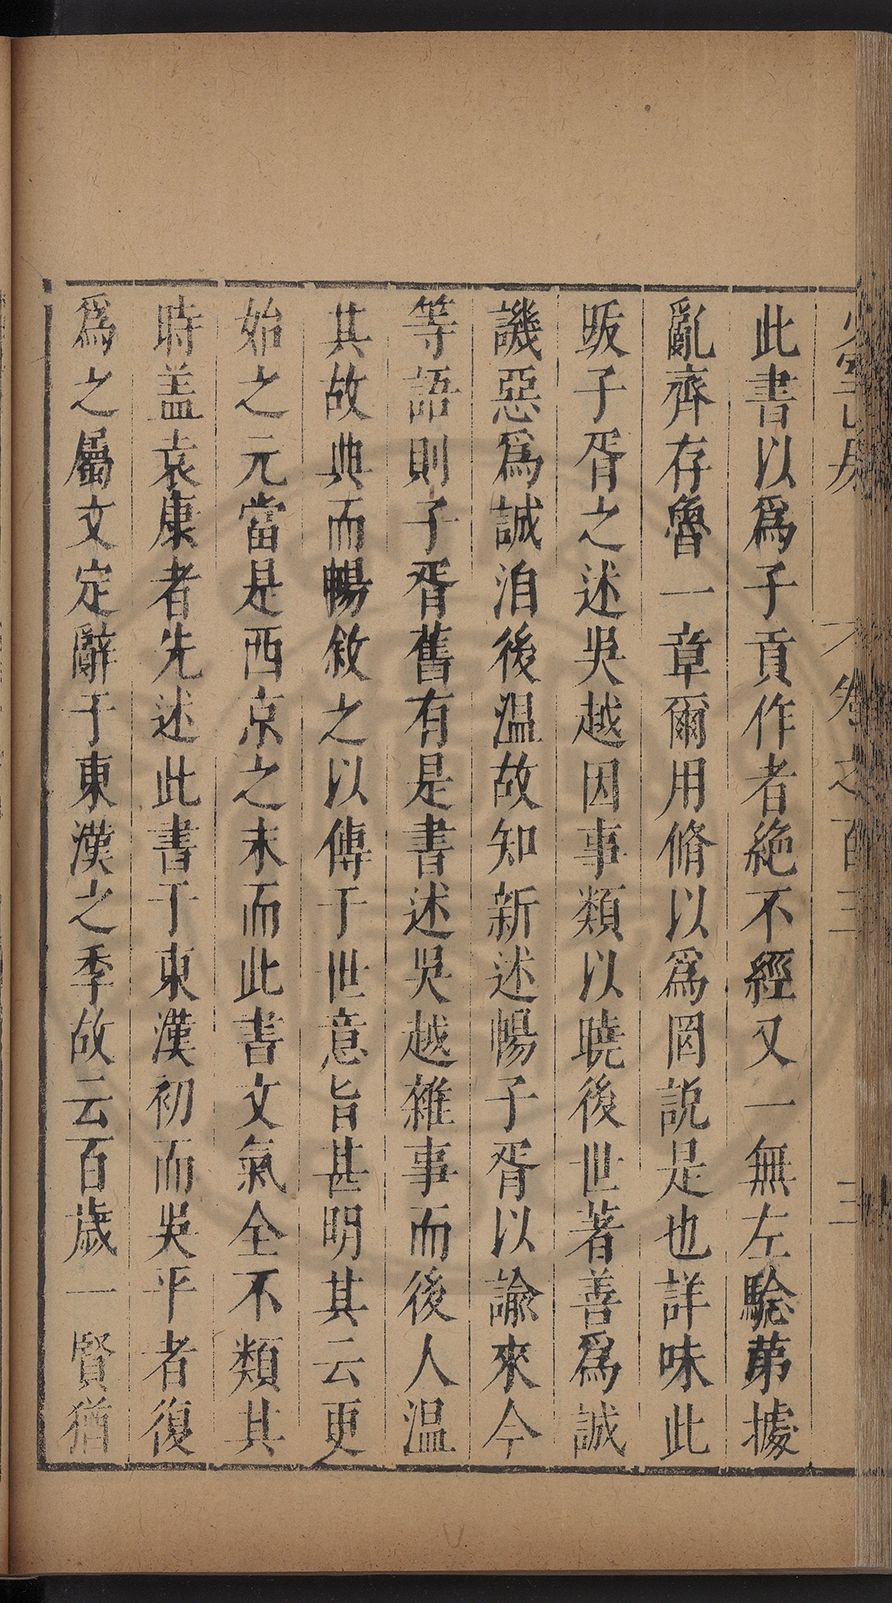 此書以爲子貢作者絶不經又一無左騐苐據
亂齊存魯一章爾用脩以爲罔説是也詳味此
䟦子胥之述吳越因事類以曉後世著善爲誠
譏惡爲誠洎後温故知新述暢子胥以諭來今
等語則子胥舊有是書述吳越雜事而後人温
其故典而暢敘之以傳于世意旨甚明其云更
始之元當是西京之末而此書文氣全不類其
時盖袁康者先述此書于東漢初而吳平者復
爲之屬文定辭于東漢之季故云百歲一賢猶